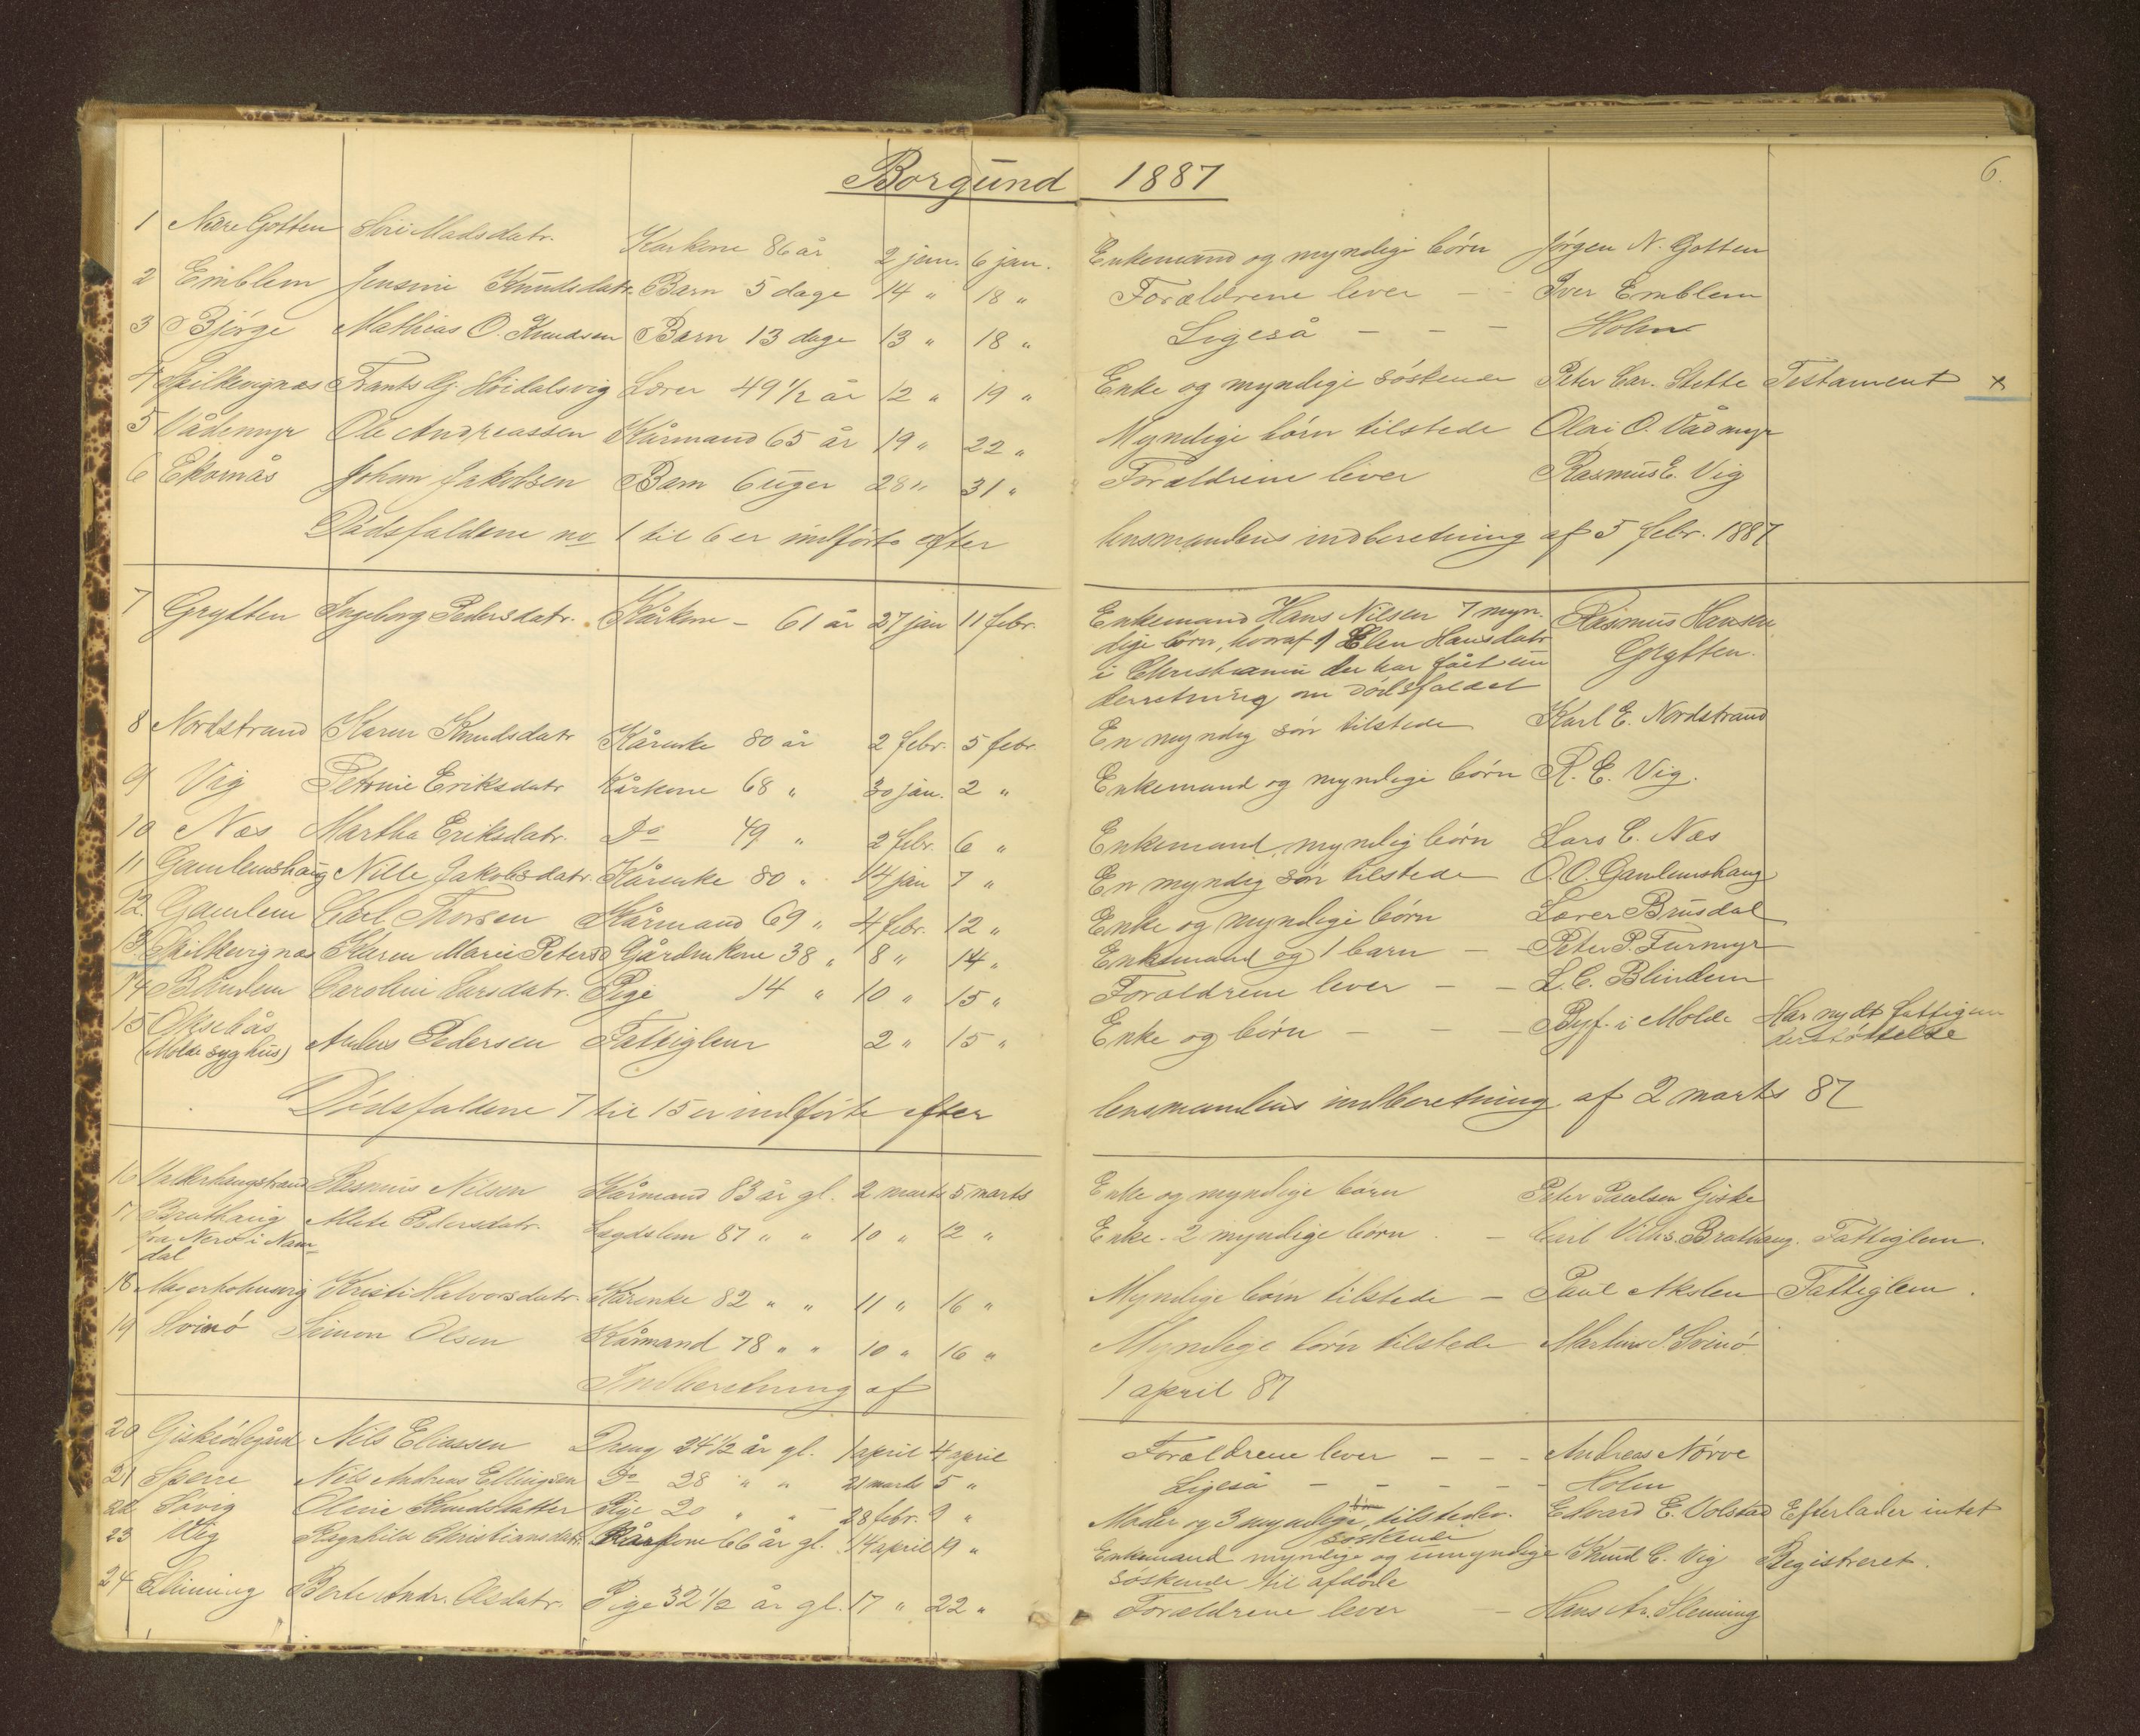 6.
Borgund 1887
1 Nedre Gotten Siri Madsdatr. Kaarkone 86 år 2 jan. 6 jan. Enkemand og myndige börn Jörgen N. Gotten
2 Emblem Jensine Knudsdatr. Barn 5 dage 14 " 18 " Forældrene lever - - Iver Emblem
3 Björge Mathias O. Knudsen Barn 13 dage 13 " 18 " Ligeså - - - Holm
4 Spilkevignæs Frants Hoidalsvig Lærer 49 1/2 år 12 " 19 " Enke og myndige söskende Peter Car. Stette Testament x
5 Vådemyr Ole Andreassen Kårmand 65 år 19 " 22 " Myndige börn tilstede Olai O. Vådmyr
6 Ekornås Johan Jakobsen Barn 6 uger 28 " 31 " Forældrene lever Rasmus E. Vig
Dödsfaldene no 1 til 6 er indförte efter lensmandens indberetning af 5 febr. 1887
7 Grytten Ingeborg Pedersdatr. Kårkone - 61 år 27 jan 11 febr. Enkemand Hans Nilsen 7 myn- Rasmus Hansen
dige börn, hvoraf 1 Elen Hansdatr Grytten.
i Christiania der har fået un
derretning om dödsfaldet
8 Nordstrand Karen Knudsdatr Kårenke 80 år 2 febr. 5 febr. En myndig sön tilstede Karl E. Nordstrand
9 Vig Petrine Eriksdatr Kårkone 68 " 30 jan. 2 " Enkemand og myndige börn R. E. Vig.
10 Næs Martha Eriksdatr. Do 49 " 2 febr. 6 " Enkemand, myndig börn Lars C. Næs
11 Gamlemshaug Nille Jakobsdatr. Kårenke 80 " 14 jan 7 " En myndig sön tilstede O. O. Gamlemshaug
12. Gamlem Carl Thorsen Kårmand 69 " 4 febr. 12 " Enke og myndige börn Lærer Brusdal
13. Spilkevignæs Karen Marie Petersd Gårdmkone 38 " 8 " 14 " Enkemand og 1 barn - Peter P. Furmyr
14 Blindem Caroline Larsdatr. Pige 14 " 10 " 15 " Forældrene lever - - L. C. Blindem
15 Oksebås Anders Pedersen Fattiglem 2 " 15 " Enke og börn - - - Byf. i Molde Har nydt fattigun
(Molde syghus) derstöttelse
Dödsfaldene 7 til 15 er indförte efter lensmandens indberetning af 2 marts 87
16 Valderhaugstrand Rasmus Nilsen Kårmand 83 år gl. 2 marts 5 marts Enke og myndige börn Peter Paulsen Giske
17 Brathaug Mete Pedersdatr. Lægdslem 87 " " 10 " 12 " Enke - 2 myndige börn - Carl Vilhs. Brathaug. Fattiglem.
fra Nerö i Nam-
dal
18 Magerholmsvig Kristi Halvorsdatr. Kårenke 82 " " 11 " 16 " Myndige börn tilstede - Paul Akslen Fattiglem.
19 Svinö Simon Olsen Kårmand 78 " " 10 " 16 " Myndige börn tilstede Martinus S. Svinö
Indberetning af 1 april 87
20 Giskeödegård Nils Eliassen Dreng 24 1/2 år gl. 1 april 4 april Forældrene lever - - - Andreas Nörve
21 Sperre Nils Andreas Ellingsen Do 28 " " 21 marts 5 " Ligeså - - - - Holm
22 Sövig Oline Knudsdatter Pige 20 " " 28 febr. 9 " Moder og 3 myndige börn tilstede. Edvard E. Volstad Efterlader intet
söskende
23 Vig Ragnhild Christiansdatr. Kårkone 66 år gl. 14 april 19 " Enkemand myndige og umyndige Knud E. Vig Registreret.
söskende til afdöde
24 Slinning Berte Andr. Olsdatr. Pige 32 1/2 år gl. 17 " 22 " Forældrene lever - Hans An. Slinning